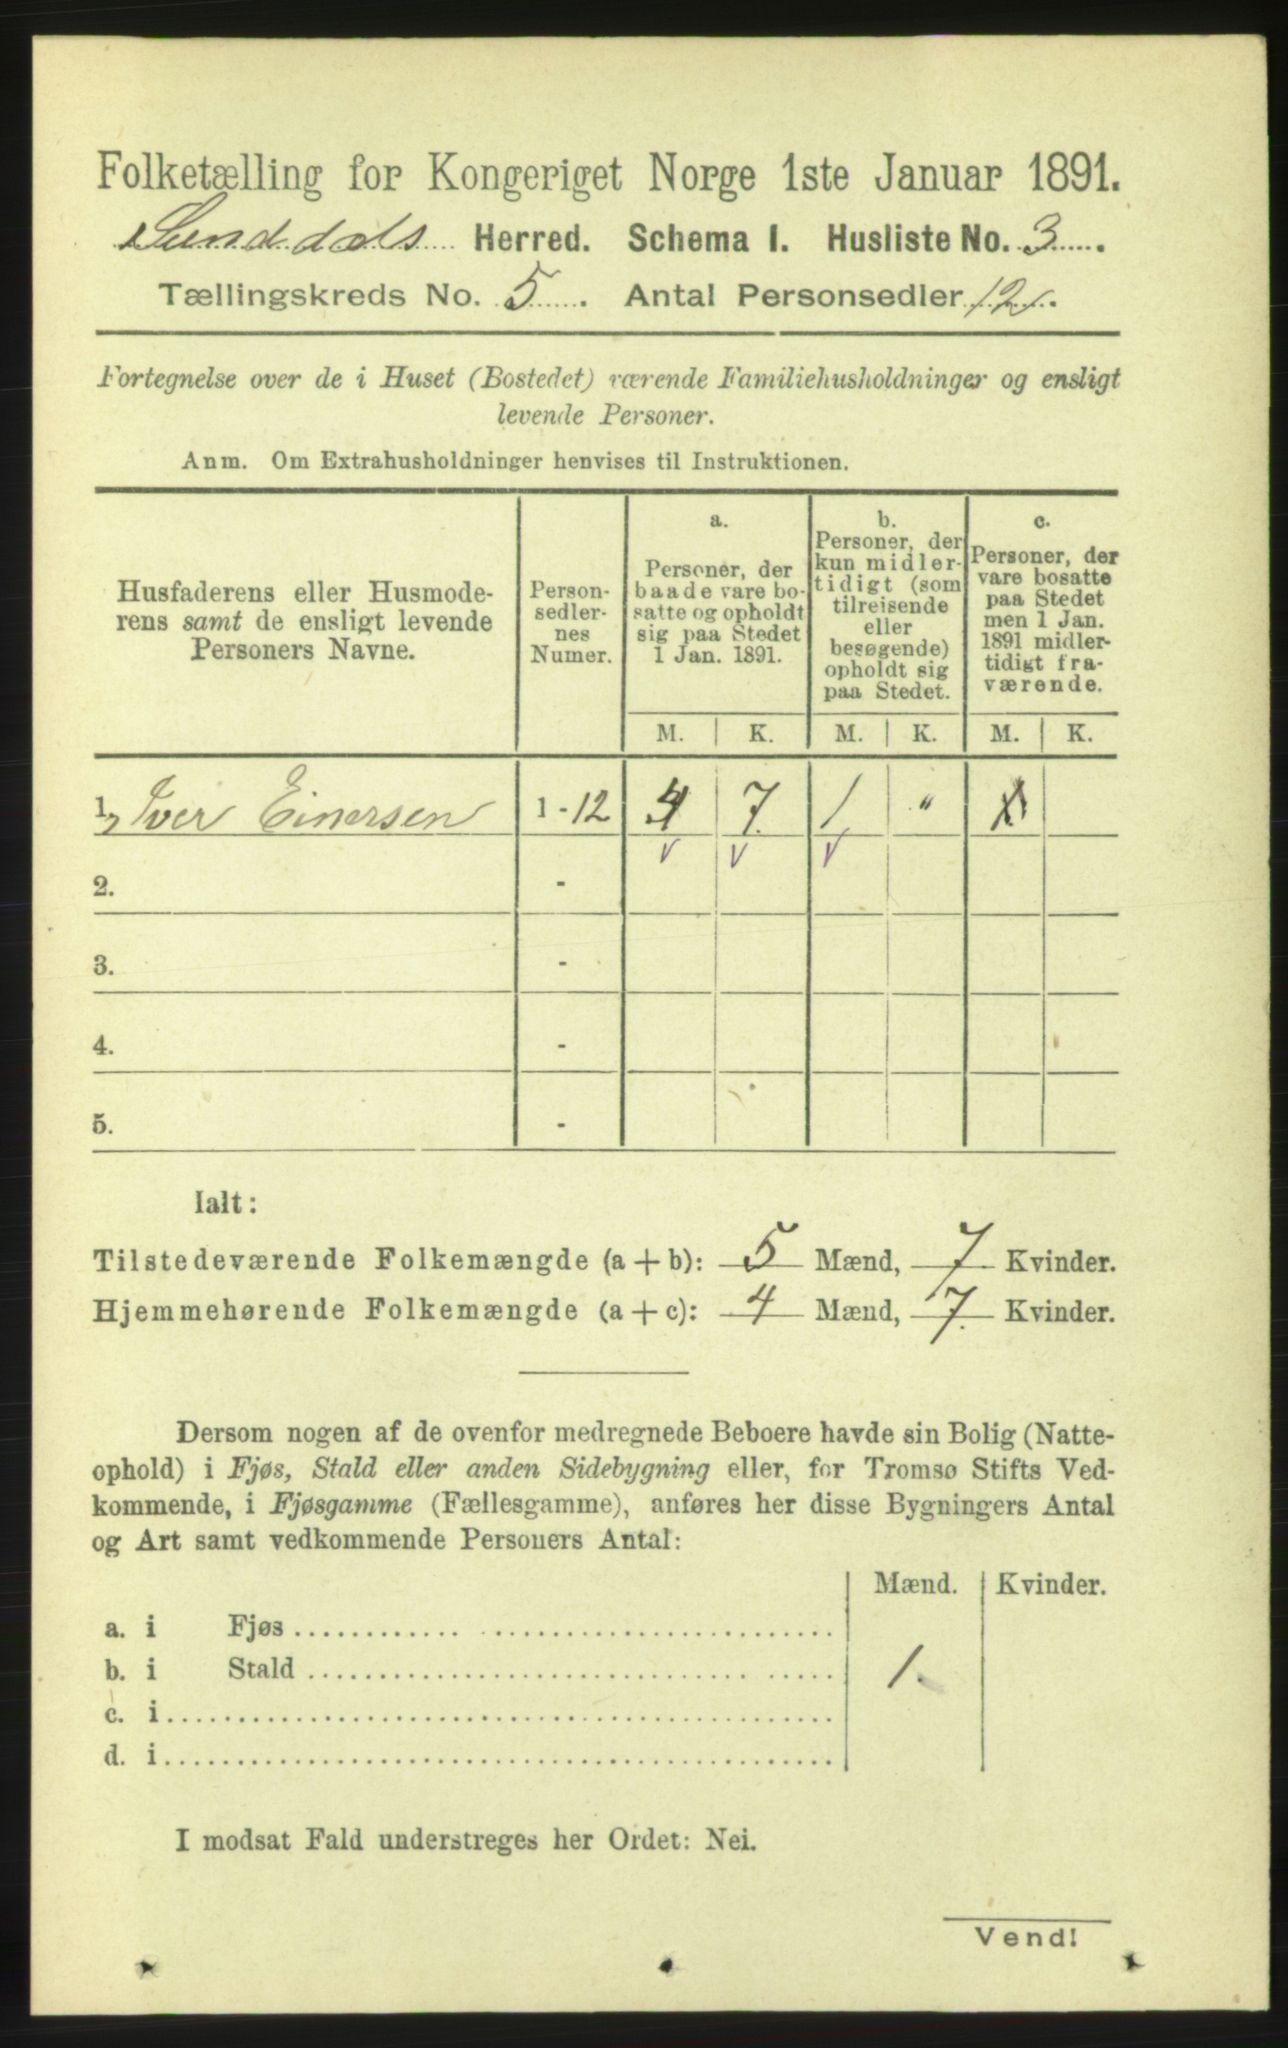 Folketælling for Kongeriget Norge 1ste Januar 1891.
Sunddals Herred. Schema I. Husliste No. 3.
Tællingskreds No. 5. Antal Personsedler 12.
Fortegnelse over de i Huset (Bostedet) værende Familiehusholdninger og ensligt
levende Personer.
Anm. Om Extrahusholdninger henvises til Instruktionen.
Husfaderens eller Husmode-
rens samt de ensligt levende
Personers Navne.
Person-
sedler-
nes
Numer.
a.
Personer, der
baade vare bo-
satte og opholdt
sig paa Stedet
1 Jan. 1891.
b.
Personer, der
kun midler-
tidigt (som
tilreisende
eller
besøgende)
opholdt sig
paa Stedet.
c.
Personer, der
vare bosatte
paa Stedet
men 1 Jan.
1891 midler-
tidigt fra-
værende.
M. K. M. K. M. K.
1. Iver Einersen 1 - 12 4 7. 1 "
2. -
3. -
4. -
5. -
Ialt:
Tilstedeværende Folkemængde (a + b): 5 Mænd, 7 Kvinder.
Hjemmehørende Folkemængde (a + c): 4 Mænd, 7. Kvinder.
Dersom nogen af de ovenfor medregnede Beboere havde sin Bolig (Natte-
ophold) i Fjøs, Stald eller anden Sidebygning eller, for Tromsø Stifts Ved-
kommende, i Fjøsgamme (Fællesgamme), anføres her disse Bygningers Antal
og Art samt vedkommende Personers Antal:
Mænd. Kvinder.
a. i Fjøs
b. i Stald 1.
c. i
d. i
I modsat Fald understreges her Ordet: Nei.
Vend!